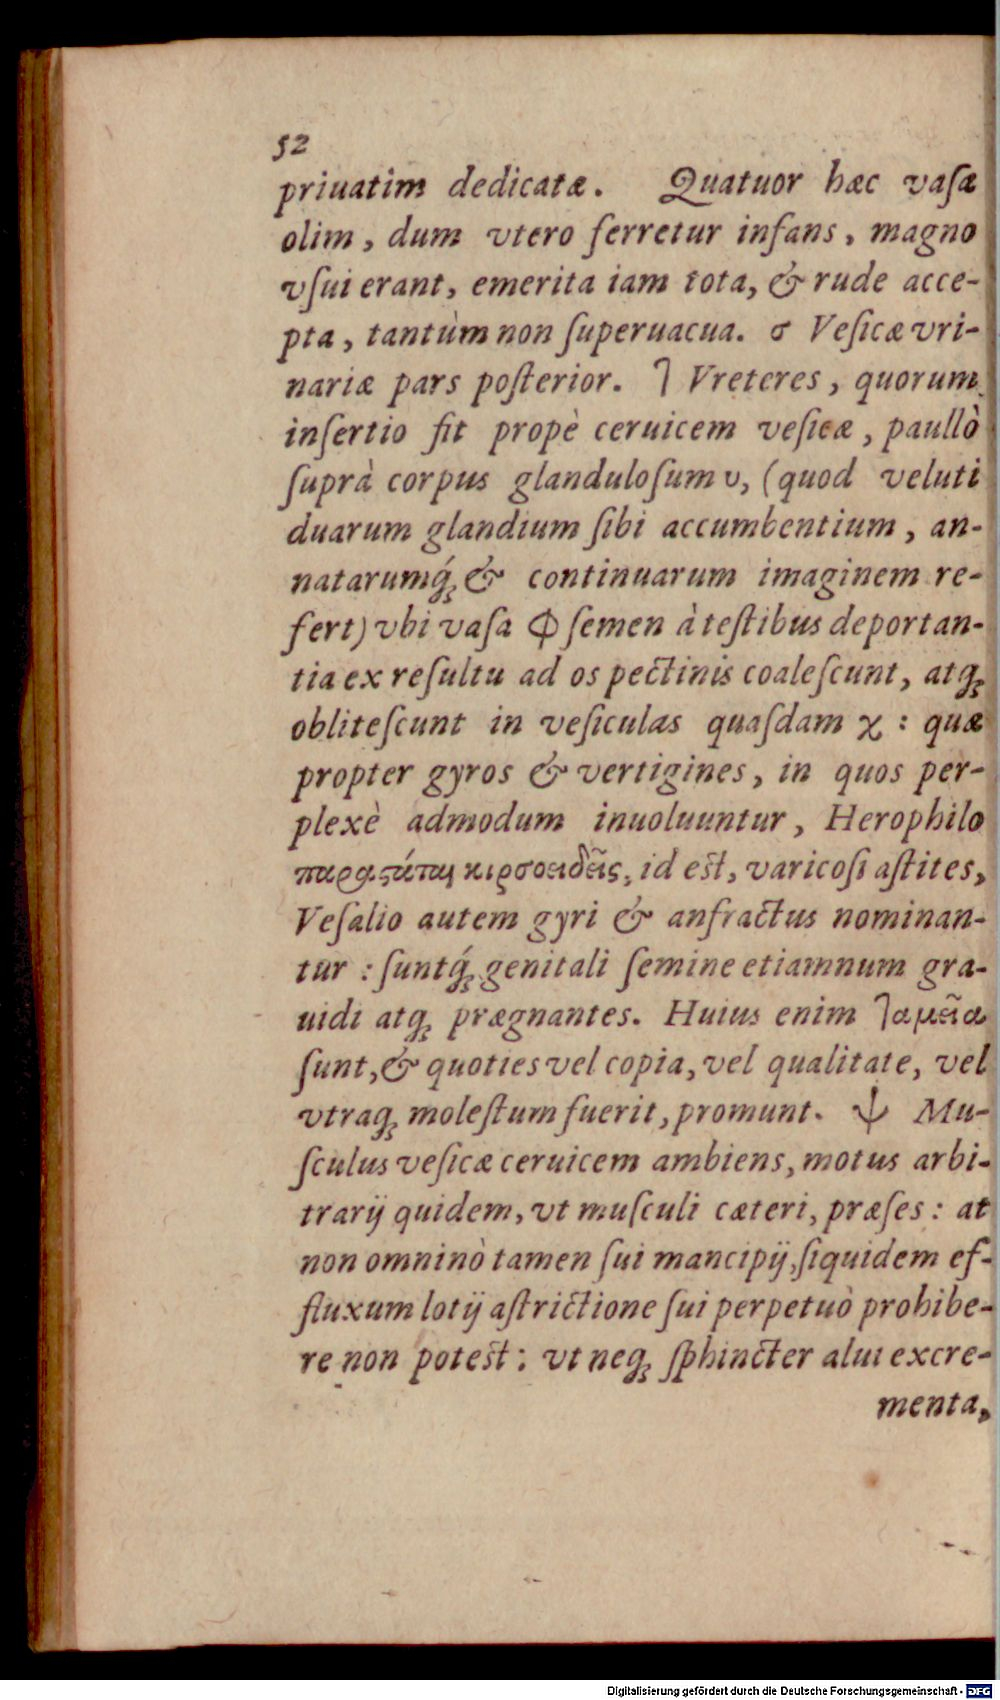 52
priuatim dedicatæ. Quatuor hæc vasæ
olim, dum vtero ferretur infans, magno
vſui erant, emerita iam tota, & rude acce-
pta, tantùm non ſuperuacua. σ Veſicæ vri-
nariæ pars poſterior. ꓶ Vreteres, quorum
inſertio fit propè ceruicem veſicæ, paullò
ſuprà corpus glanduloſum υ, (quod veluti
duarum glandium ſibi accumbentium, an-
natarumq́ꝫ & continuarum imaginem re-
fert) vbi vaſa Φ ſemen à teſtibus deportan-
tia ex reſultu ad os pectinis coaleſcunt, atqꝫ
obliteſcunt in veſiculas quaſdam χ : quæ
propter gyros & vertigines, in quos per-
plexè admodum inuoluuntur, Herophilo
παραϛάται κιρσοειδεῖς, id est, varicoſi aſtites,
Veſalio autem gyri & anfractus nominan-
tur : ſuntq́ꝫ genitali ſemine etiamnum gra-
uidi atqꝫ prægnantes. Huius enim ταμεῖα
ſunt, & quoties vel copia, vel qualitate, vel
vtraqꝫ moleſtum fuerit, promunt. ψ Mu-
ſculus veſicæ ceruicem ambiens, motus arbi-
trarij quidem, vt muſculi cæteri, præſes : at
non omninò tamen ſui mancipij, ſiquidem ef-
fluxum lotij aſtrictione ſui perpetuò prohibe-
re non potest : vt neqꝫ ſphincter alui excre-
menta,
Digitalisierung gefördert durch die Deutsche Forschungsgemeinschaft - DFG